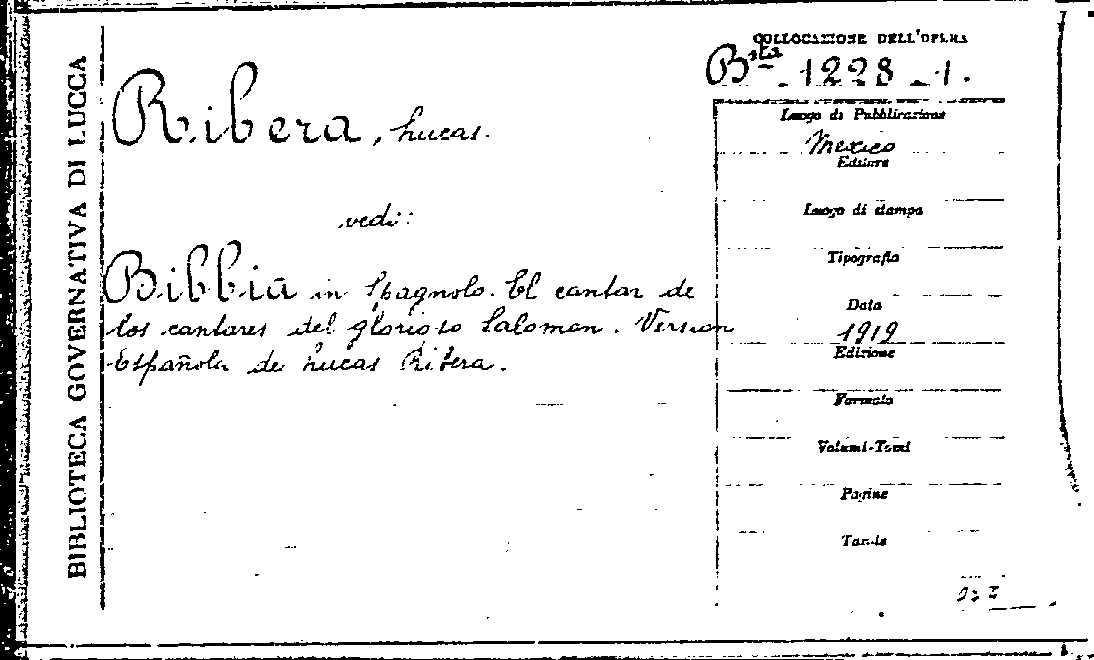 BIBLIOTECA GOVERNATIVA DI LUCCA
COLLOCAZIONE DELL'OPERA
Bsta 1228 - 1.
Ribera, Lucas.
vedi:
Bibbia in Spagnolo. El cantar de
los cantares del glorioso Saloman. Version
Española de Lucas Ribera.
Luogo di Pubblicazione
Mexico
Editore
Luogo di stampa
Tipografia
Data
1919
Edizione
Formato
Volumi-Tomi
Pagine
Tavole